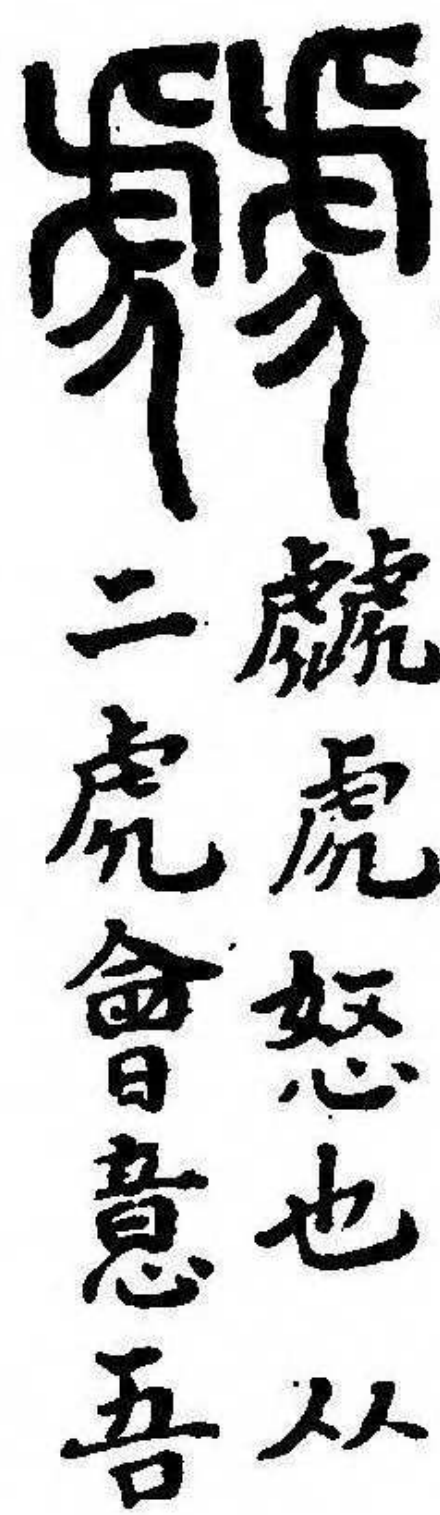 虤
虤虎怒也从
二虎會意吾